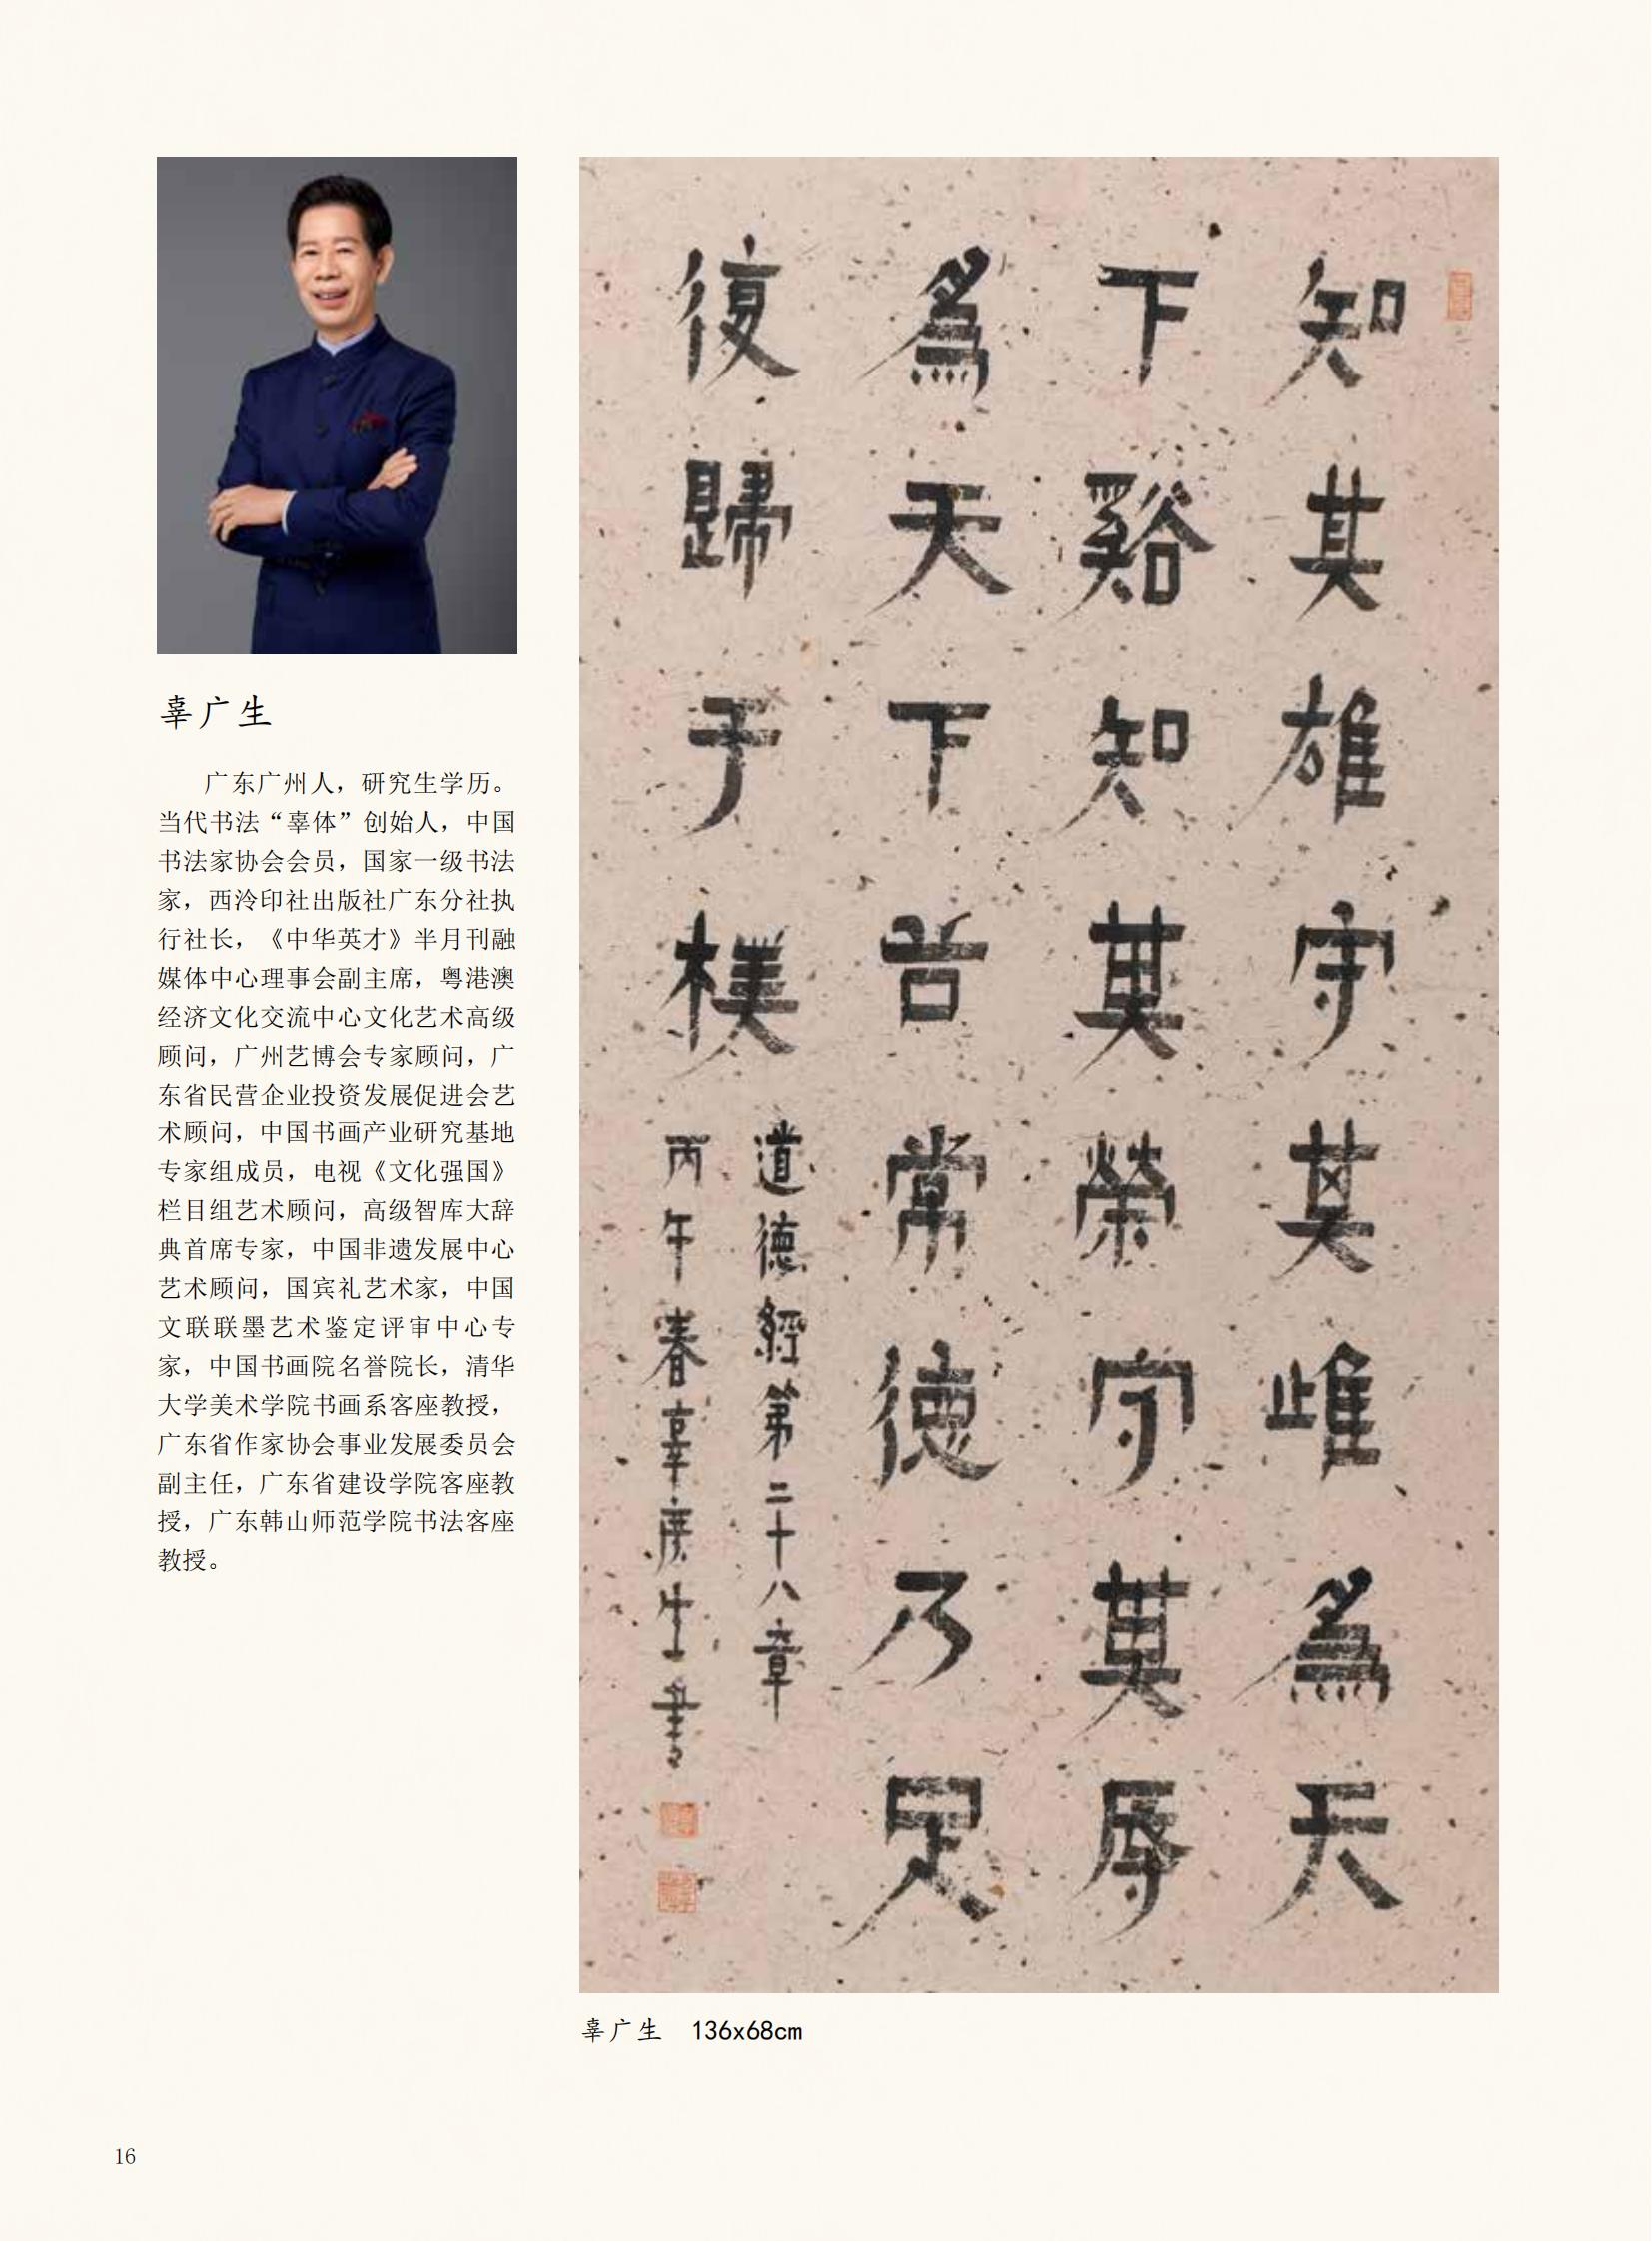 辜广生
广东广州人，研究生学历。
当代书法“辜体”创始人，中国
书法家协会会员，国家一级书法
家，西泠印社出版社广东分社执
行社长，《中华英才》半月刊融
媒体中心理事会副主席，粤港澳
经济文化交流中心文化艺术高级
顾问，广州艺博会专家顾问，广
东省民营企业投资发展促进会艺
术顾问，中国书画产业研究基地
专家组成员，电视《文化强国》
栏目组艺术顾问，高级智库大辞
典首席专家，中国非遗发展中心
艺术顾问，国宾礼艺术家，中国
文联联墨艺术鉴定评审中心专
家，中国书画院名誉院长，清华
大学美术学院书画系客座教授，
广东省作家协会事业发展委员会
副主任，广东省建设学院客座教
授，广东韩山师范学院书法客座
教授。
知其雄守其雌為天
下谿知其榮守其辱
為天下谷常德乃足
復歸于樸
道德經第二十八章
丙午春辜廣生書
辜广生 136x68cm
16